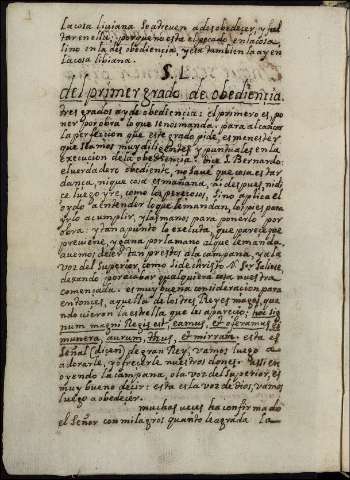 la cosa liuiana se atreuen a desobedecer, y fal
tar en ella: porque no esta el pecado en la cosa,
sino en la desobediencia, y esta tambien la ay en
la cosa libiana.
§.
del primer grado de obediencia.
tres grados ay de obediencia: el primero es, po
ner por obra lo que se nos manda. para alcançar
la perfeccion que este grado pide, es menester
que seamos muy diligentes y puntuales en la
execucion de la obediencia. Dice S. Bernardo:
el verdadero obediente, no saue que cosa es tar
dança, ni que cosa es mañana, ni despues, ni di
ce luego yre, como los perezosos, sino aplica el
oydo a entender lo que le mandan, los pies para
yrlo a cumplir, y las manos para ponerlo por
obra: y tan a punto lo executa, que parece que
previene, y gana por la mano al que le manda.
auemos de ser tan prestos a la campana, y a la
voz del Superior, como si de christo N. Sor saliese
dexando por acabar qualquiera cosa nuestra
començada. es muy buena consideracion para
entonces, aquella de los tres Reyes magos, quan
do vieron la estrella que les aparecio: hoc sig
num magni Regis est, eamus, et offeramus ei
munera, aurum, thus, et mirram. esta es
Señal (dicen) de gran Rey, vamos luego a
adorarle, y ofrecerle nuestros dones. Assi en
oyendo la campana, o la voz del superior, es
muy bueno decir: esta es la voz de dios, vamos
luego a obedecer.
muchas veces ha confirmado
el Señor con milagros quanto le agrada la